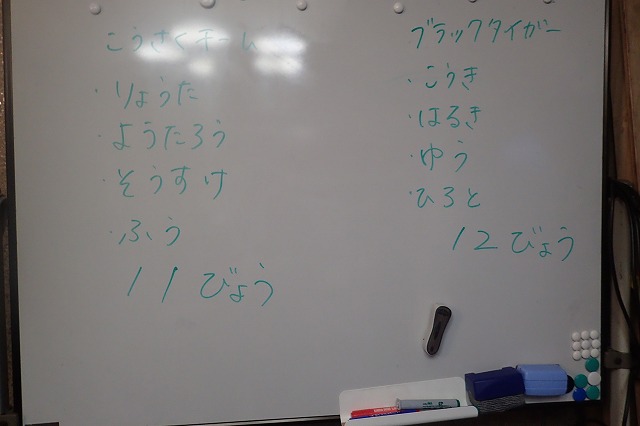 こうさくチーム
・りょうた
・ようたろう
・そうすけ
・ふう
11びょう
ブラックタイガー
・こうき
・はるき
・ゆう
・ひろと
12びょう